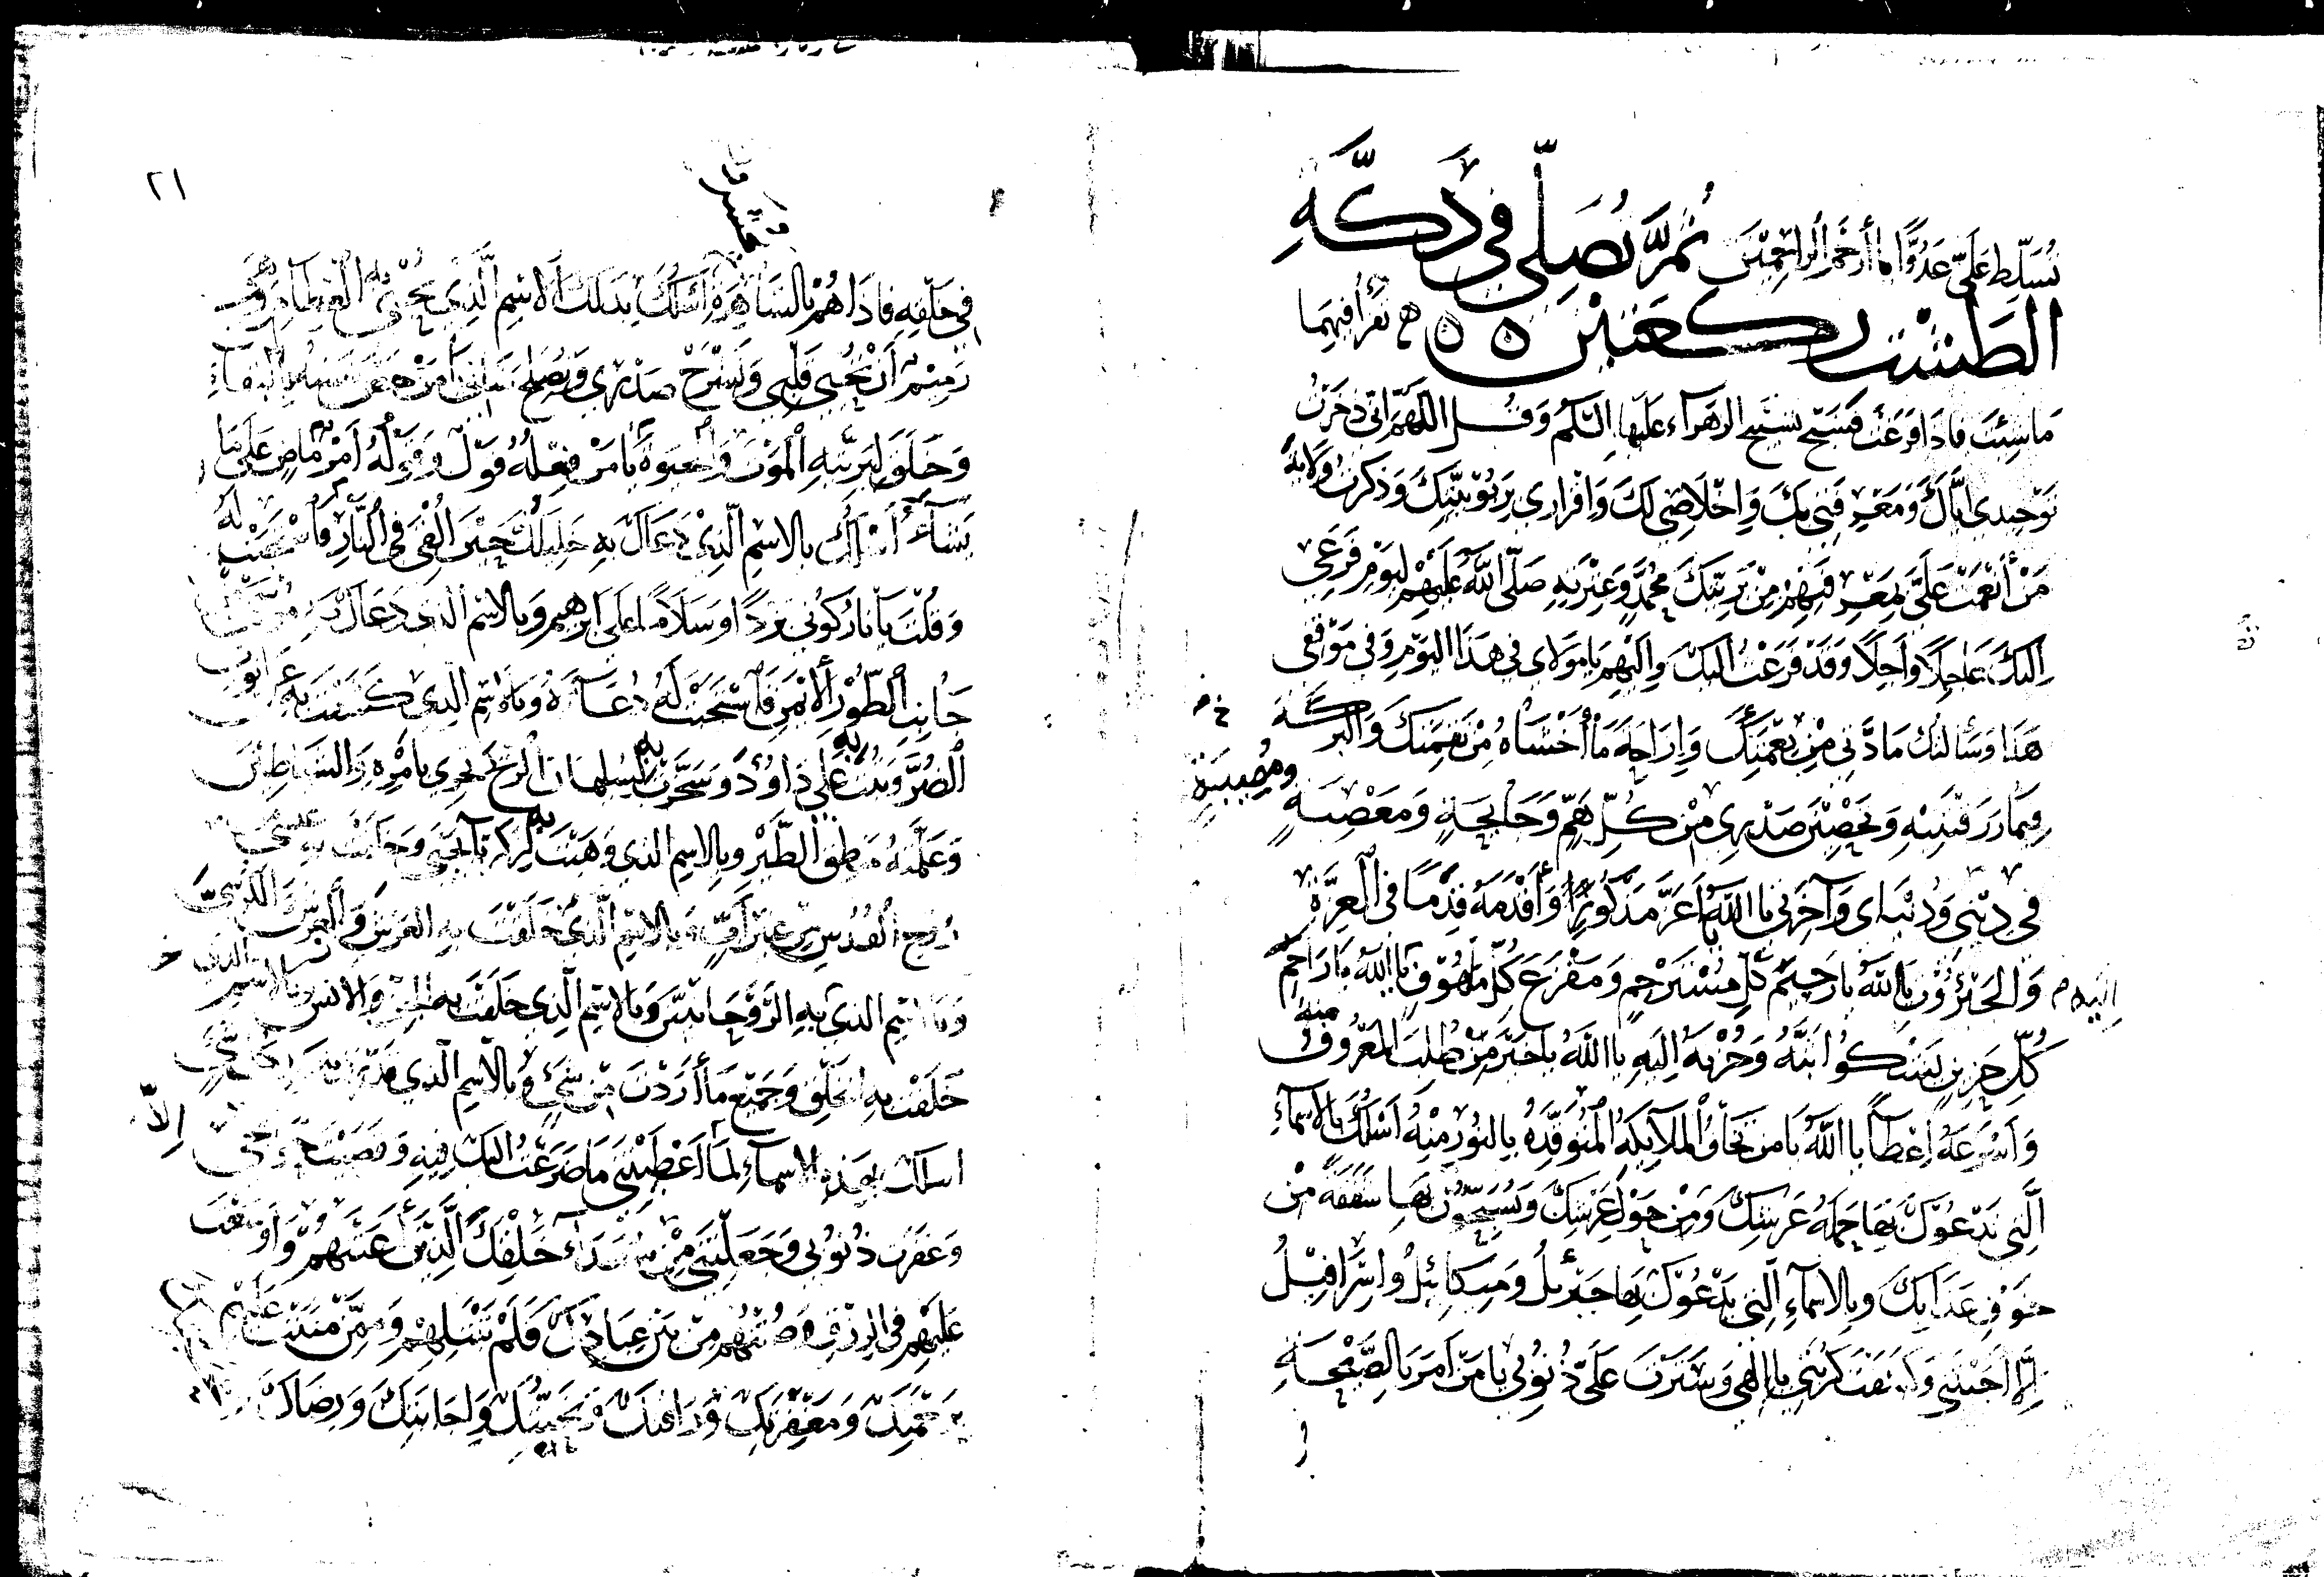 تُسَلِّطْ عَلَيَّ عَدُوًّا يا أَرْحَمَ الرَّاحِمِينَ ثُمَّ تُصَلِّي فِي دَكَّةِ
الطَّشْتِ رَكْعَتَيْنِ تقرأ فيهما
مَا شِئْتَ فاذا فَرَغْتَ فَسَبِّحْ تسبيح الزهرآء عليها السّلم وَقُل اللّهمّ انّي ذخرتُ
تَوْحِيدي ايّاكَ وَمَعْرِفَتِي بِكَ وَاِخْلَاصِي لَكَ وَاِقْرَاري بِرُبُوبِيَّتِكَ وَذَكَرْتُ وَلايَةَ
مَنْ أَنْعَمْتَ عَلَيَّ بِمَعْرِفَتِهِمْ مِنْ بَرِيَّتِكَ مُحَمَّدٍ وَعِتْرَتِهِ صَلّى اللّهُ عَلَيْهِمْ لِيَوْمِ فَزَعِي
اِلَيْكَ عَاجِلًا وَآجِلًا وَقَدْ فَزِعْتُ اِلَيْكَ وَاِلَيْهِم يا مَوْلاي في هَذَا اليَوْمِ وَفِي مَوْقِفِي
هَذَا وَسَأَلتُكَ مَادَّتِي مِنْ نِعْمَتِكَ وَاِزَاحَةَ مَا أَخْشَاهُ مِنْ نِقْمَتِكَ وَالْبَرَكَةَ
فِيمَا رَزَقْتَنِيهِ وَتَحْصِينَ صَدْرِي مِنْ كُلِّ هَمٍّ وَجَايِحَةٍ وَمَعْصِيَةٍ
ومُصيبةٍ
في دِيْنِي وَدُنْيَاي وَآخِرَتِي يا اللّهُ يا أَعَزَّ مَذْكُورٍ وَأَقْدَمَهُ قِدَمًا في الْعِزَّةِ
وَالجَبَرُوْتِ يَا اَللّهُ يا رَحِيمَ كُلِّ مُسْتَرْحِمٍ وَمَفْزَعَ كُلِّ مَلْهُوْفٍ يا اللّه يا رَاحِمَ
كُلِّ حَزِينٍ يَشْكُوا بَثَّهُ وَحُزْنَهُ اِلَيهِ يا اللّهُ يا خَيْرَ مَنْ طُلِبَ المَعْرُوفُ منهُ
وَأَسْرَعَهُ اِعْطآءً يا اَللّهُ يا مَنْ تَخَافُ الْمَلآئِكَةُ الْمُتَوَقِّدَةُ بِالنُّورِ مِنْهُ أَسْئَلُكَ بِالاَسْمَآءِ
الَّتِي تَدْعُوْكَ بِهَا حَمَلَةُ عَرْشِكَ وَمَنْ حَوْلَ عَرْشِكَ وَيُسَبِّحُوْنَ بِهَا شَفَقَةً مِنْ
خَوْفِ عَذَابِكَ وَبِالأَسْمَآءِ الَّتِي يَدْعُوْكَ بِهَا جَبْرَئِيلُ وَمِيكائيلُ وَاِسْرَافِيْلُ
اِلّا اَجَبْتَنِي وَكَشَفْتَ كُرْبَتِي يا اِلهي وَسَتَرْتَ عَلَيَّ ذُنُوبِي يا مَنْ أَمَرَ بِالصَّيْحَةِ
٢١
فِي خَلْقِهِ فَاذَا هُمْ بِالسَّاهِرَةِ أَسْئَلُكَ بِذَلِكَ الاِسْمِ الَّذِي تُحْيِي بِهِ الْعِظَامَ وَهِيَ
رَمِيمٌ أَنْ تُحْيِيَ قَلْبِي وَتَشْرَحَ صَدْرِي وَتُصْلِحَ شَأنِي يا مَنْ خَصَّ نَفْسَهُ بِالْبَقَاءِ
وَخَلَقَ لِبَرِيَّتِهِ الْمَوْتَ وَالْحَيَوةَ يا مَنْ فِعْلُهُ قَوْلٌ وَقَوْلُهُ أَمْرٌ وَأَمْرُهُ مَاضٍ عَلَى مَا
يَشَآءُ أَسْئَلُكَ بِالاسْمِ الَّذِي دَعَاكَ بِهِ خَلِيلُكَ حِيْنَ أُلْقِيَ فِي النَّارِ فَاسْتَجَبْتَ لَهُ
وَقُلْتَ يا نَارُ كُوْنِي بَرْدًا وَسَلَامًا عَلَى اِبْرهِيمَ وَبِالاسْمِ الّذي دَعَاكَ بِهِ مُوسَى مِنْ
جَانِبِ الطُّوْرِ الْأَيْمَنِ فَاسْتَجَبْتَ لَهُ دُعَآءَهُ وَبِالاِسْمِ الّذِي كَشَفْتَ بِهِ عَنْ أيُّوبَ
الضُّرَّ وَتُبْتَ بِهِ عَلَى دَاوُدَ وَسَخَّرْتَ بِهِ لِسُلَيْمَانَ الرِّيْحَ تَجْرِي بِأَمْرِهِ وَالشَّيَاطِيْنَ
وَعَلَّمْتَهُ مَنْطِقَ الطَّيْرِ وَبِالاِسْمِ الّذِي وَهَبْتَ بِهِ لِزَكَرِيَّا يَحْيَى وَخَلَقْتَ بِهِ عِيسَى
مِنْ رُوْحِ الْقُدُسِ مِنْ غَيْرِ أَبٍ وَبِالاِسْمِ الَّذِي خَلَقْتَ بِهِ الْعَرْشَ وَالْكُرْسِيَّ
وَبِالاِسْمِ الَّذِي خَلَقْتَ بِهِ الرَّوْحَانِيِّينَ وَبِالاِسْمِ الَّذِي خَلَقْتَ بِهِ الْجِنَّ وَالانْسَ وَبِالاِسْمِ الّذي
خَلَقْتَ بِهِ الْخَلْقَ وَجَمِيْعَ مَا أَرَدْتَ مِنْ شَيْءٍ وَبِالاسْمِ الَّذِي قَدَرْتَ بِهِ عَلَى كُلِّ شَيْءٍ
أسئلك بِهذِهِ الاسْمآءِ لَمَّا أَعْطَيْتَنِي مَا ضَرَعْتُ اِلَيْكَ فِيْهِ وَقَضَيْتَ حَوَائِجِي
اِلاّ
وَغَفَرْتَ ذُنُوْبِي وَجَعَلْتَنِي مِنْ سُعَدَآءِ خَلْقِكَ الَّذِيْنَ أَغْنَيْتَهُمْ وَأَوْسَعْتَ
عَلَيْهِمْ في الرِّزْقِ وَصُنْتَهُمْ مِنْ بَيْنِ عِبَادِكَ فَلَمْ تَبْتَلِهِمْ وَمِمَّنْ مَنَنْتَ عَلَيْهِم
بِرَحْمَتِكَ وَمَغْفِرَتِكَ وَرَأْفَتِكَ وَتَحِيَّتِكَ وَاِجَابَتِكَ وَرِضَاكَ